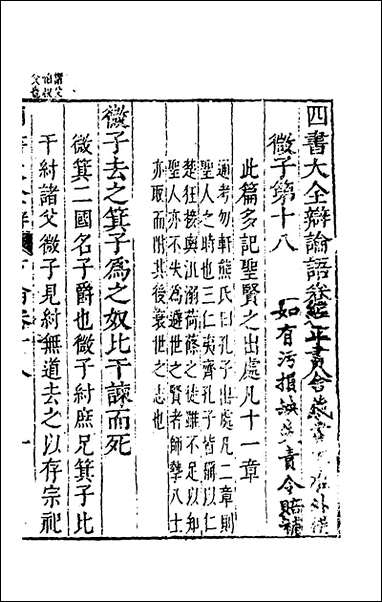 四書大全辯論語卷
如有污損缺失責令賠補
微子第十八
此篇多記聖賢之出處凡十一章
通考勿軒熊氏曰孔子出處凡二章則
聖人之時也三仁夷齊孔子皆稱以仁
楚狂接輿沮溺荷蓧之徒雖不足以知
聖人亦不失為避世之賢者師摯八士
亦取而附其後衰世之志也
微子去之箕子為之奴比干諫而死
微箕二國名子爵也微子紂庶兄箕子比
干紂諸父微子見紂無道去之以存宗祀